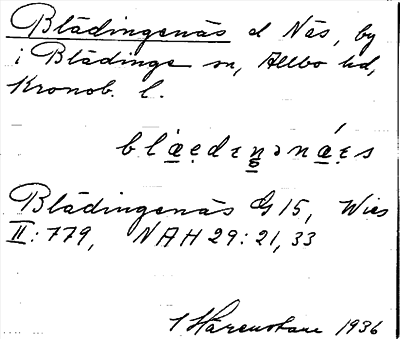 Blädingenäs el Näs, by
i Blädinge sn, Allbo hd,
Kronob. l.
Blädingenäs G 15, Wies
II: 779, NAH 29: 21, 33
1936